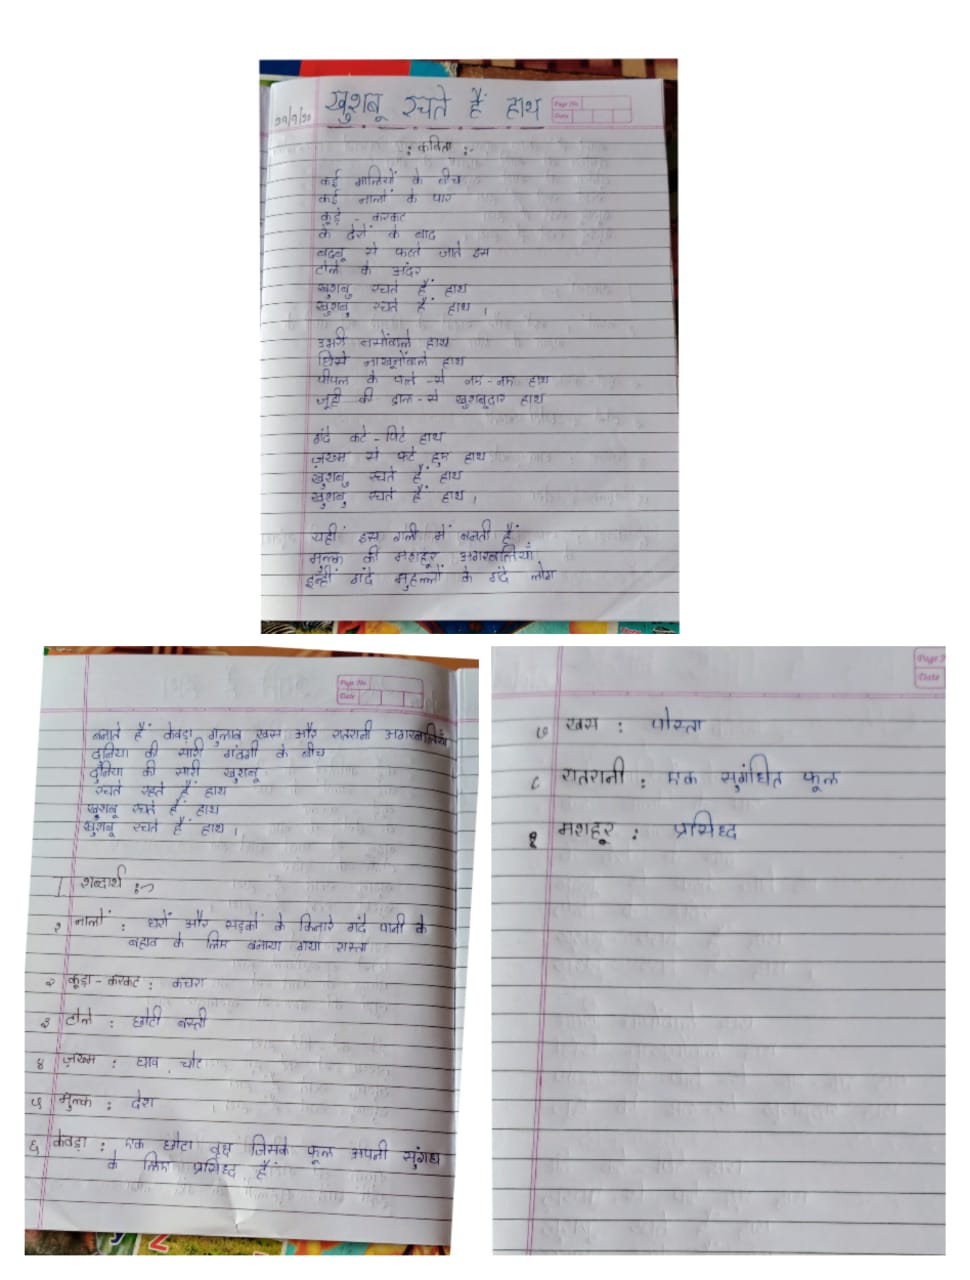 खुशबू रचते हैं हाथ
Page No.
Date
:- कविता :-
कई गालियों के बीच
कई नालों के पार
कूड़े - करकट
के ढेरों के बाद
बदबू से फटते जाते इस
टोले के अंदर
खुशबु रचते हैं हाथ
खुशबु रचते हैं हाथ ।
उभरी नसोंवाले हाथ
घिसे नाखूनोंवाले हाथ
पीपल के पत्ते -से नम - नम हाथ
जूही की डाल - से खुशबूदार हाथ
गंदे कटे - पिटे हाथ
ज़ख्म से फटे हुए हाथ
खुशबु रचते हैं हाथ
खुशबु रचते हैं हाथ ।
यहीं इस गली में बनती हैं
मुल्क की मशहूर अगरबत्तियाँ
इन्हीं गंदे मुहल्लों के गंदे लोग
Page No.
Date
बनाते हैं केवड़ा गुलाब खस और रातरानी अगरबत्तियाँ
दुनिया की सारी गंदगी के बीच
दुनिया की सारी खुशबू
रचते रहते हैं हाथ
खुशबू रचते हैं हाथ
खुशबू रचते हैं हाथ ।
I शब्दार्थ :-
१ नालों : घरों और सड़कों के किनारे गंदे पानी के
बहाव के लिए बनाया गया रास्ता
२ कूड़ा - करकट : कचरा
३ टोले : छोटी बस्ती
४ ज़ख्म : घाव , चोट
५ मुल्क : देश
६ केवड़ा : एक छोटा वृक्ष जिसके फूल अपनी सुंगध
के लिए प्रसिध्द हैं
Date
७ खस : पोस्ता
८ रातरानी : एक सुगंधित फूल
९ मशहूर : प्रसिध्द